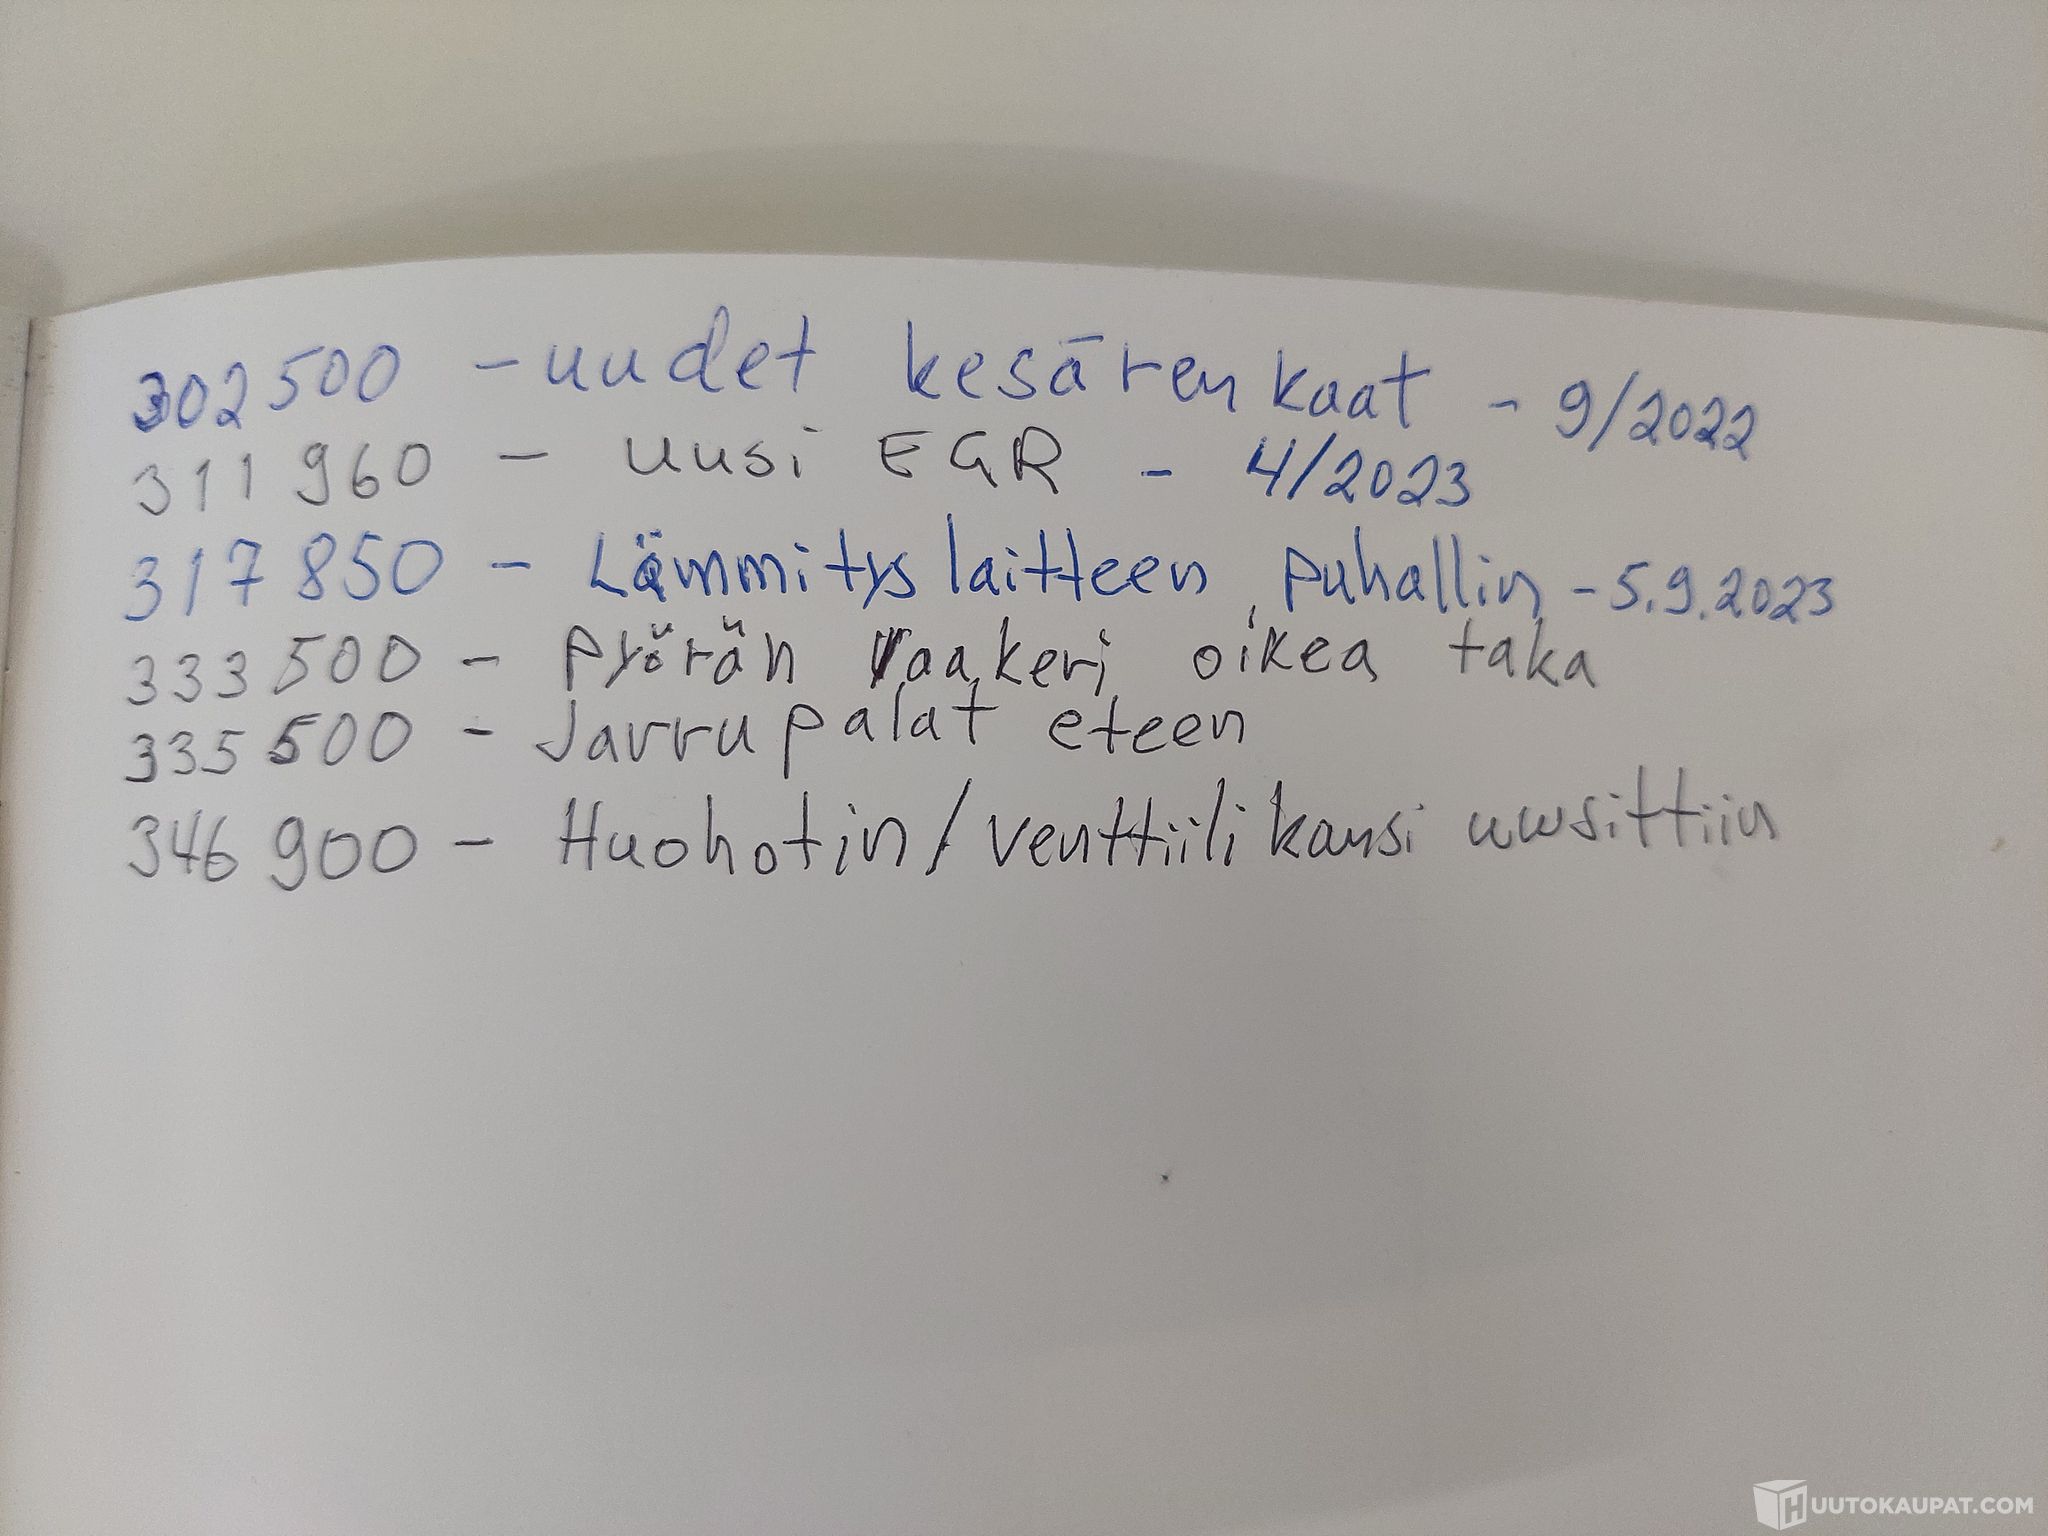 302500 - uudet kesärenkaat - 9/2022
311960 - uusi EGR - 4/2023
317850 - Lämmityslaitteen puhallin - 5.9.2023
333500 - Pyörän laakeri oikea taka
335500 - Jarrupalat eteen
346900 - Huohotin/venttiilikansi uusittiin
HUUTOKAUPAT.COM